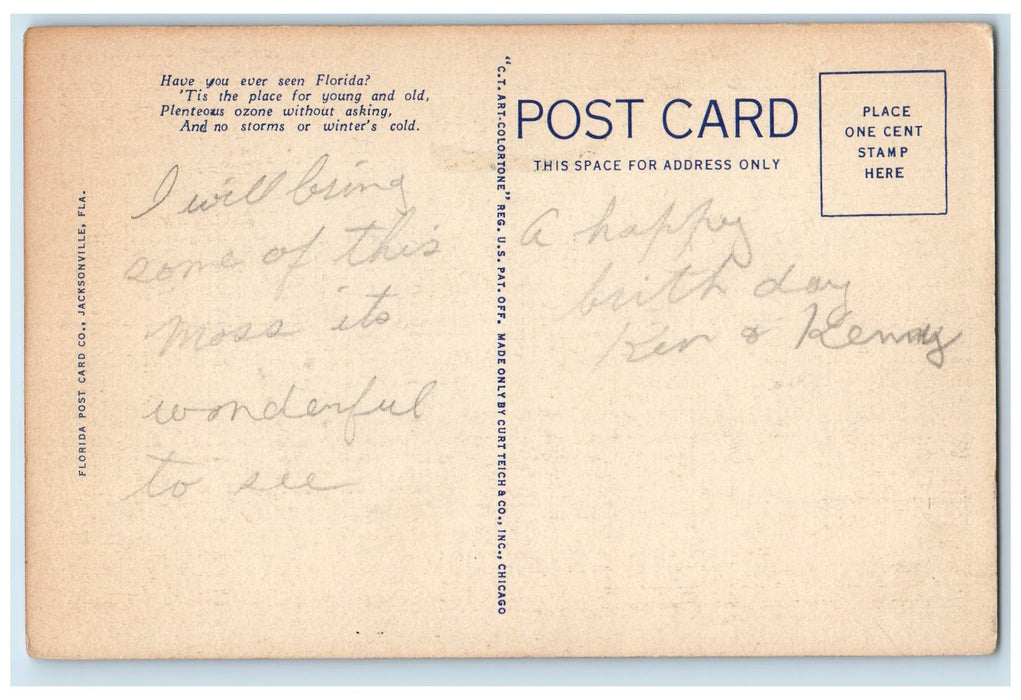 Have you ever seen Florida?
'Tis the place for young and old,
Plenteous ozone without asking,
And no storms or winter's cold.
I will bring
some of this
moss its
wonderful
to see
FLORIDA POST CARD CO., JACKSONVILLE, FLA.
"C.T. ART-COLORTONE" REG. U.S. PAT. OFF. MADE ONLY BY CURT TEICH & CO., INC., CHICAGO
POST CARD
THIS SPACE FOR ADDRESS ONLY
PLACE
ONE CENT
STAMP
HERE
A happy
birth day
Ken & Kenny